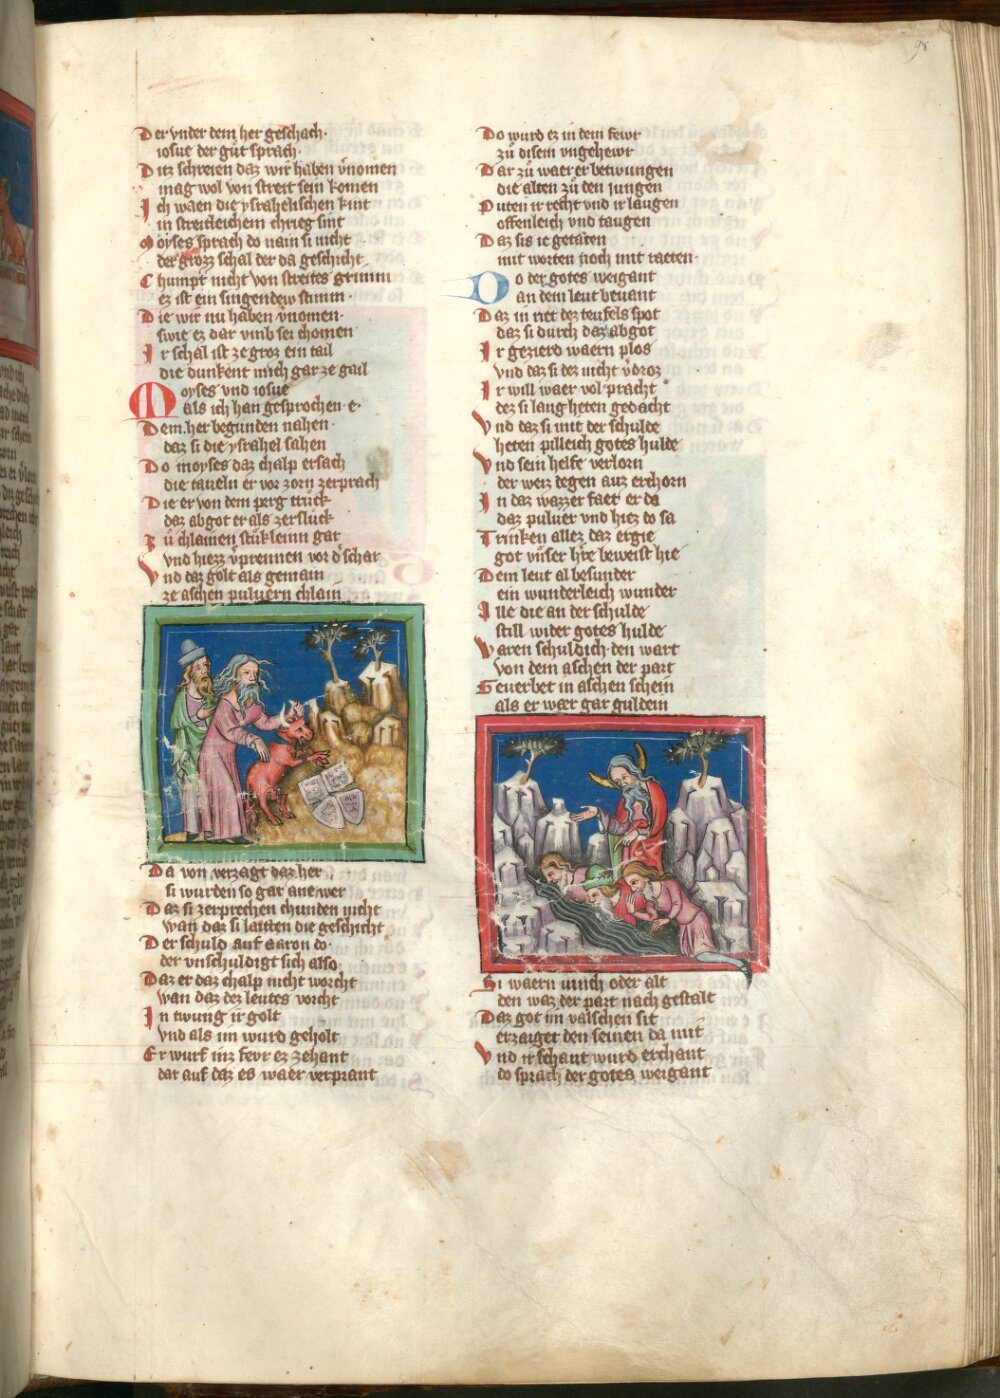 98
Der vnder dem her geschach·
iosue der gůt sprach·
Ditz schreien daz wir haben v̄nomen
mag wol von streit sein komen
Ich waen die ysrahelischen kint
in streitleichem chrieg sint
Moyses sprach do nain si nicht
der grozz schal der da geschicht
Chumpt nicht von streites grimm
ez ist ein singendew stimm·
Die wir nu haben v̄nomen·
swie ez dar vmb sei chomen
Ir schal ist ze groz ein tail
die dunkent mich gar ze gail
Moyses vnd iosue
als ich han gesprochen·e·
Dem her begunden nahen·
daz si die ysrahel sahen
Do moyses daz chalp ersach
die taueln er vor zorn zerprach
Die er von dem perg truck
daz abgot er als zersluck
Zů chlainen stükleinn gar
vnd hiezz v̄prennen vor d' schar
Vnd daz golt als gemain
ze aschen puluern chlain
Da von verzagt daz her
si wurden so gar ane wer
Daz si zerprechen chunden nicht
wan daz si laitten die geschicht
Der schuld auf aaron do·
der vnschuldigt sich also
Daz er daz chalp nicht worcht
wan daz dez leutes vorcht
In twung ir golt
vnd als im wurd geholt
Er wurf inz fevr ez zehant
dar auf daz ez waer verprant
Do wurd ez in dem fewr
zů disem vngehewr
Dar zů waer er betwungen
die alten zů den jungen
Puten ir recht vnd ir laugen
offenleich vnd taugen
Daz sis ie getaten
mit worten noch mit raeten·
Do der gotes weigant
an dem leut bevant
Daz in riet dez teufels spot
daz si durch daz abgot
Ir gezierd waern plos
vnd daz si dez nicht v̄droz
Ir will waer vol pracht
dez si lang heten gedacht
Vnd daz si mit der schulde
heten pilleich gotes hulde
Vnd sein helfe verlorn
der weiz degen auz erchorn
In daz wazzer saet er da
daz puluer vnd hiez do sa
Trinken allez daz ergie
got vnser h're beweist hie
Dem leut al besunder
ein wunderleich wunder
Alle die an der schulde
still wider gotes hulde
Waren schuldich den wart
von dem aschen der part
Geuerbet in aschen schein
als er waer gar guldein
Si waern iunch oder alt
den waz der part nach gestalt
Daz got im valschen sit
erzaiget den seinen da mit
Vnd ir schant wurd erchant
do sprach der gotes weigant